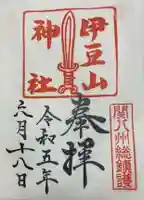 伊豆山
神社
關八州総鎮護
奉拝
令和五年
六月十八日